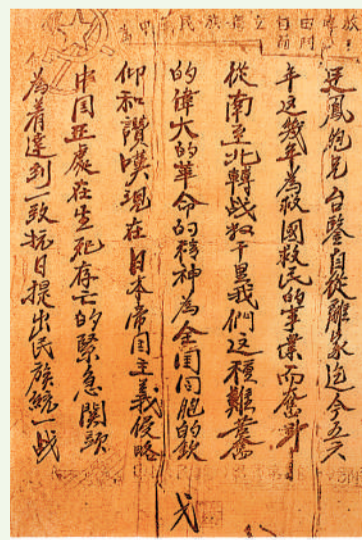 鳳鮑兄台鑒自從離家迄今五六
年这幾年為救國救民的事業而奮鬥
從南至北轉战数千里我們这種艱苦奮
的偉大的革命的精神為全国同胞的欽
仰和讚嘆現在日本帝国主義侵略
中国正處在生死存亡的緊急關頭
為着達到一致抗日提出民族統一战